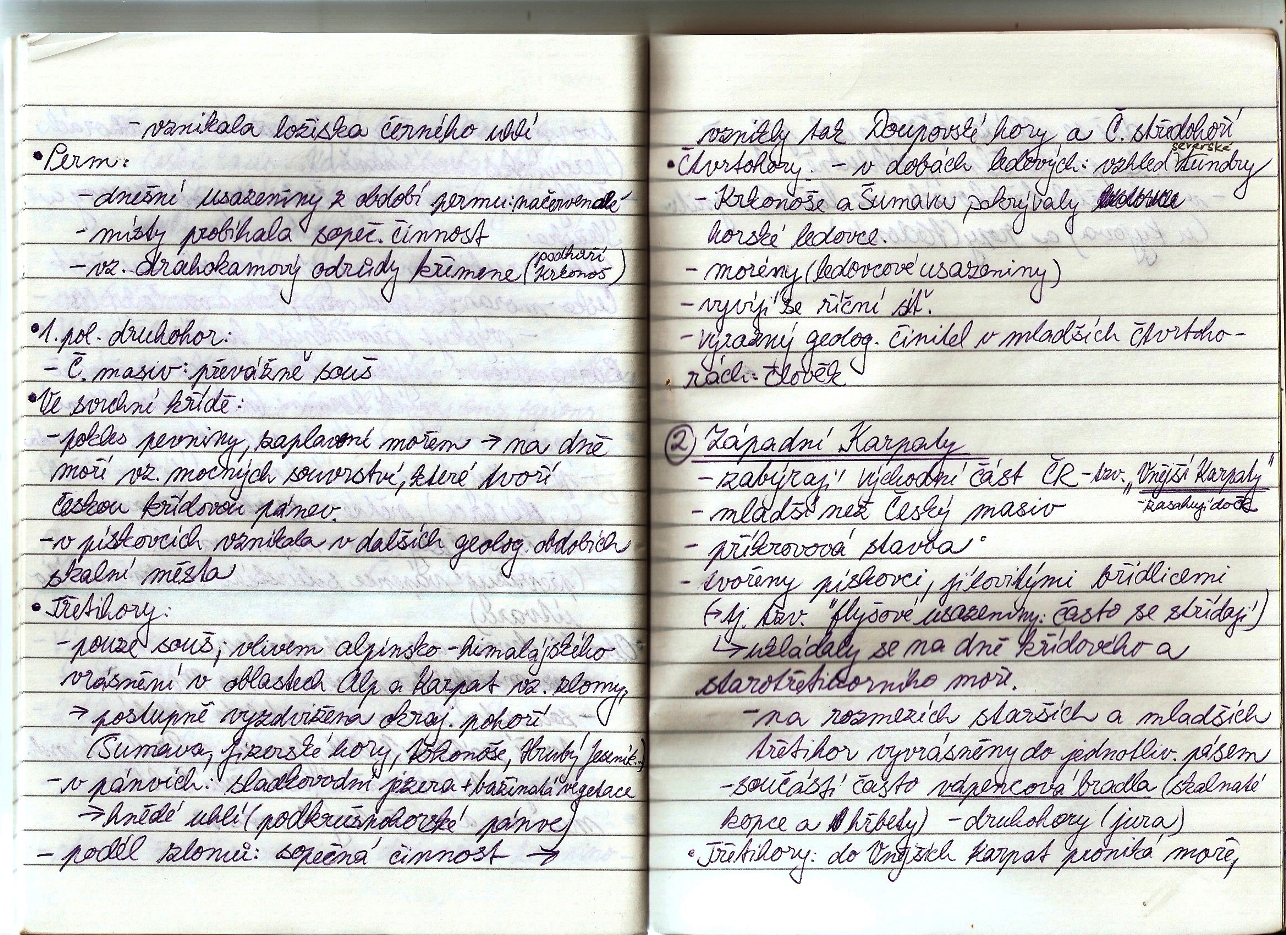 - vznikala ložiska černého uhlí
• Perm:
- dnešní usazeniny z období permu: načervenalé
- místy probíhala sopeč. činnost
- vz. drahokamový odrůdy křemene (podhůří Krkonoš)
• 1. pol. druhohor:
- Č. masiv: převážně souš
• Ve svrchní křídě:
- pokles pevniny, zaplavení mořem → na dně
moří vz. mocných souvrství, které tvoří
českou křídovou pánev.
- v pískovcích vznikala v dalších geolog. obdobích
skalní města
• Třetihory:
- pouze souš; vlivem alpínsko-himalájského
vrásnění v oblastech Alp a Karpat vz. zlomy,
→ postupně vyzdvižena okraj. pohoří
(Šumava, Jizerské hory, Krkonoše, Hrubý Jeseník..)
- v pánvích: sladkovodní jezera + bažinatá vegetace
→ hnědé uhlí (podkrušnohorské pánve)
- podél zlomů: sopečná činnost →
vznikly tak Doupovské hory a Č. středohoří
• Čtvrtohory: - v dobách ledových: vzhled severské tundry
- Krkonoše a Šumavu pokrývaly
horské ledovce.
- morény (ledovcové usazeniny)
- vyvíjí se říční síť.
- výrazný geolog. činitel v mladších čtvrtoho-
rách: člověk
② Západní Karpaty
- zabírají východní část ČR - tzv. "Vnější Karpaty"
- zasahují do ČR
- mladší než Český masiv
- příkrovová stavba
- tvořeny pískovci, jílovitými břidlicemi
(→ tj. tzv. "flyšové usazeniny: často se střídají)
↳ ukládaly se na dně křídového a
starotřetihorního moře.
- na rozmezích starších a mladších
třetihor vyvrásněny do jednotliv. pásem
- součástí často vápencová bradla (skalnaté
kopce a hřbety) - druhohory (jura)
• Třetihory: do Vnějších Karpat proniká moře,